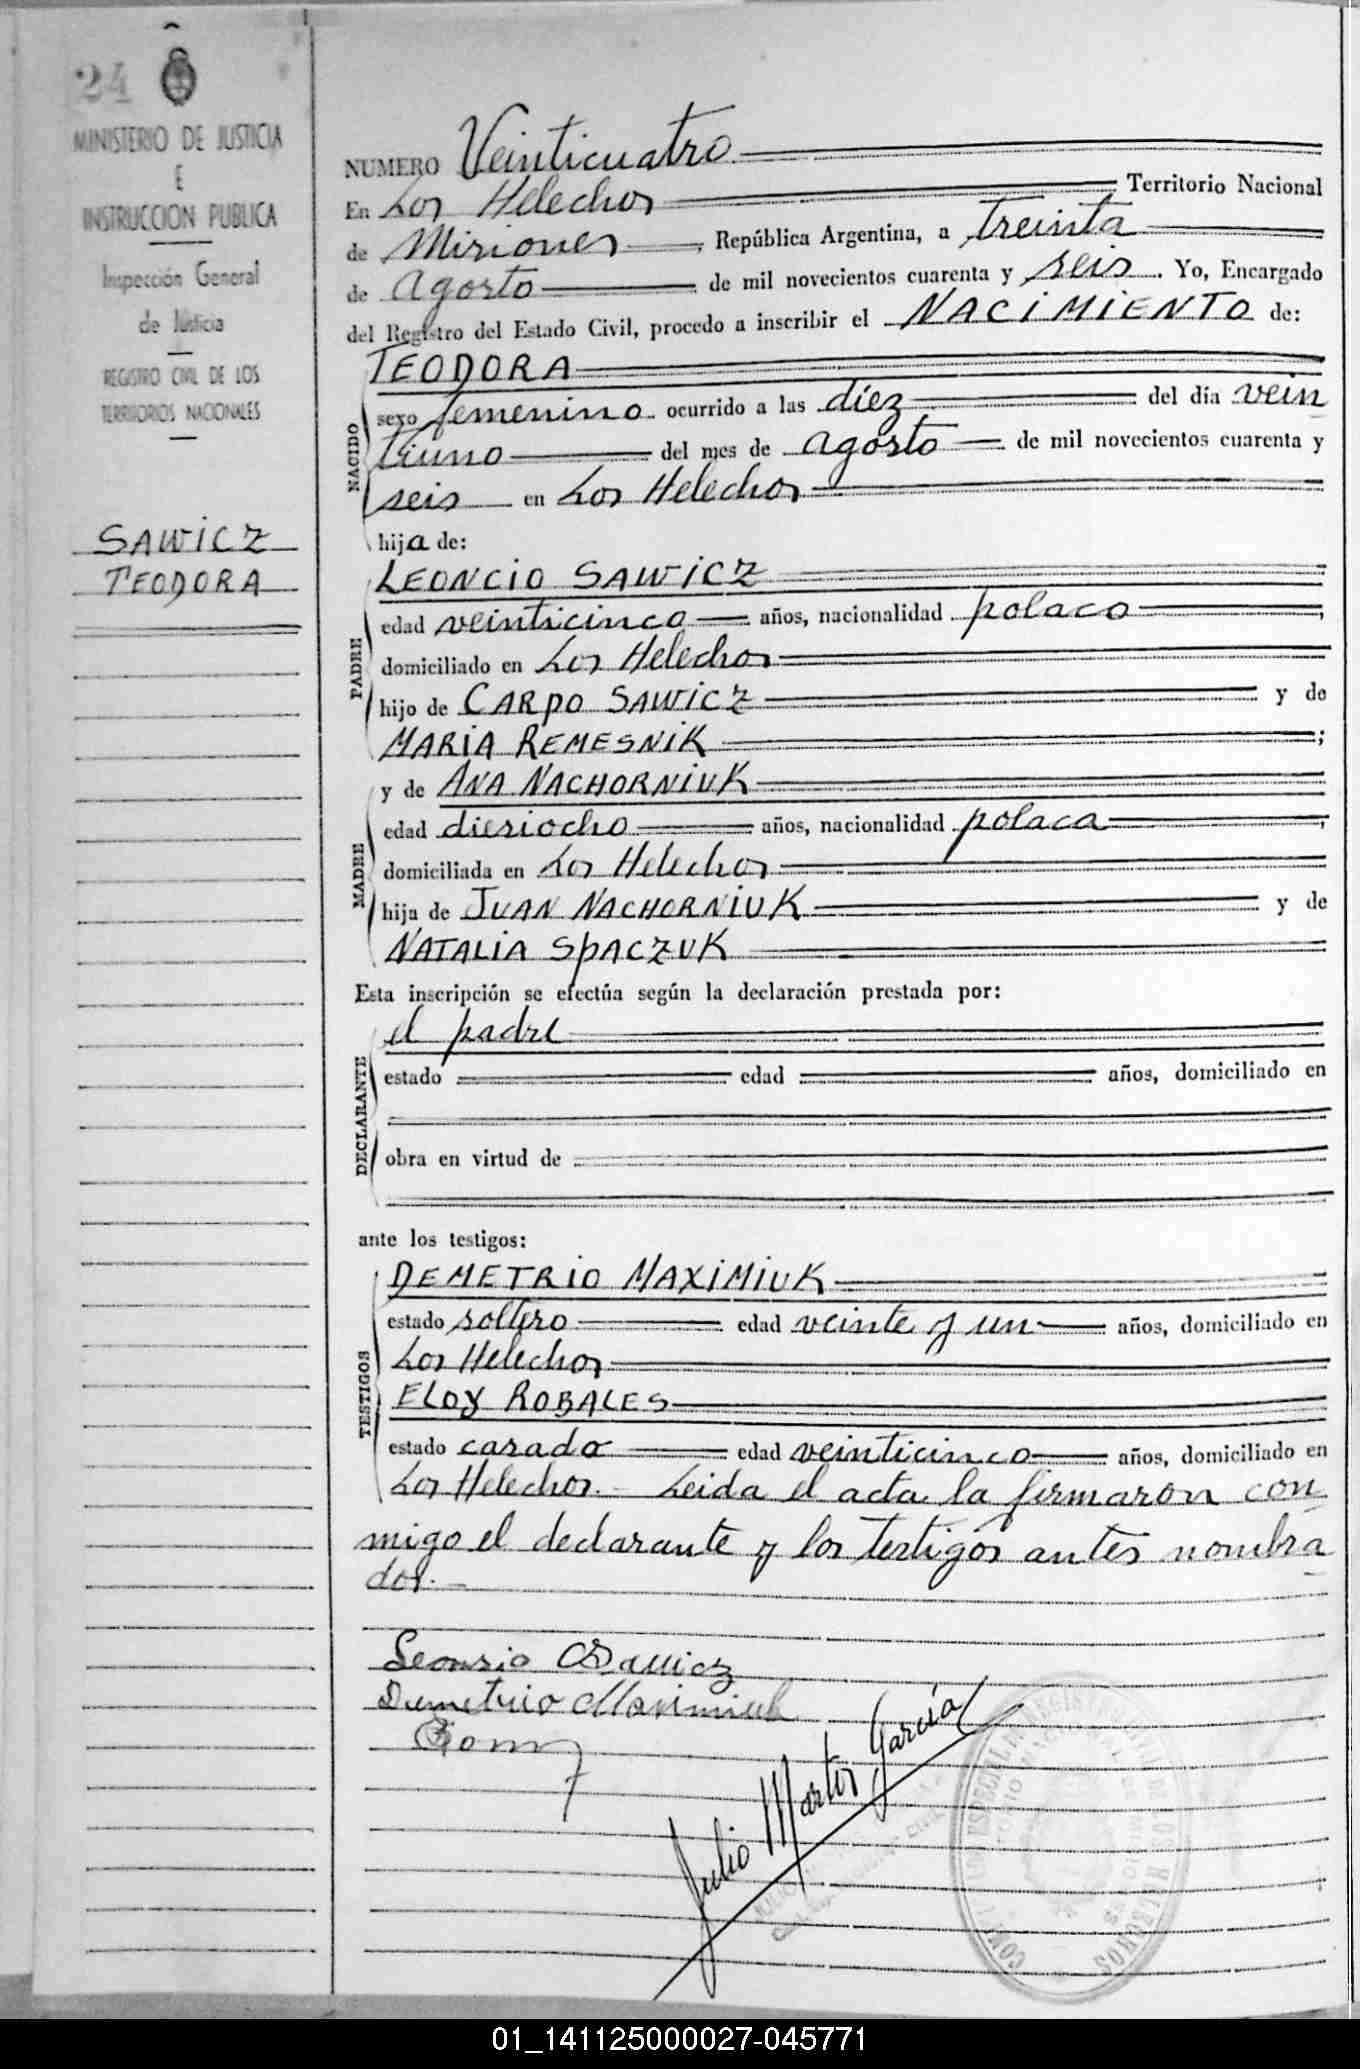 24
MINISTERIO DE JUSTICIA
E
INSTRUCCION PUBLICA
Inspección General
de Justicia
REGISTRO CIVIL DE LOS
TERRITORIOS NACIONALES
SAWICZ
TEODORA
NUMERO Veinticuatro
En Los Helechos Territorio Nacional
de Misiones, República Argentina, a treinta
de agosto de mil novecientos cuarenta y seis. Yo, Encargado
del Registro del Estado Civil, procedo a inscribir el NACIMIENTO de:
NACIDO
TEODORA
sexo femenino ocurrido a las diez del día vein
tiuno del mes de agosto de mil novecientos cuarenta y
seis en Los Helechos
hija de:
PADRE
LEONCIO SAWICZ
edad veinticinco años, nacionalidad polaco;
domiciliado en Los Helechos
hijo de CARPO SAWICZ y de
MARIA REMESNIK;
MADRE
y de ANA NACHORNIUK
edad diesiocho años, nacionalidad polaca;
domiciliada en Los Helechos
hija de JUAN NACHORNIUK y de
NATALIA SPACZUK
Esta inscripción se efectúa según la declaración prestada por:
DECLARANTE
el padre
estado edad años, domiciliado en
obra en virtud de
ante los testigos:
TESTIGOS
DEMETRIO MAXIMIUK
estado soltero edad veinte y un años, domiciliado en
Los Helechos
ELOY ROBALES
estado casado edad veinticinco años, domiciliado en
Los Helechos.- Leida el acta la firmaron con
migo el declarante y los testigos antes nombra
dos.-
Leonsio Sawicz
Demetrio Maximiuk
Julio Martos García
01_141125000027-045771